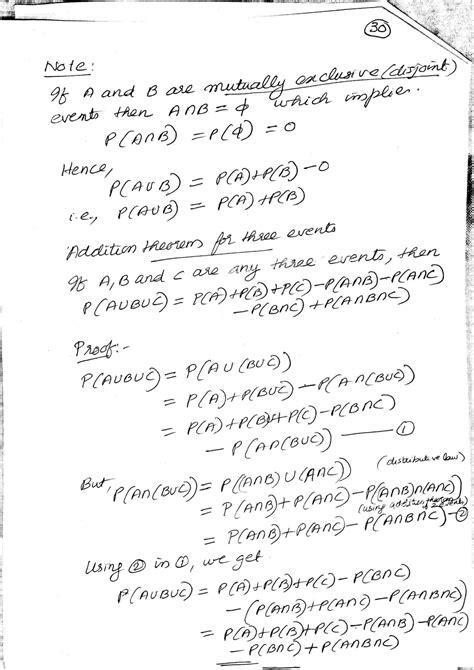 30
Note:
If A and B are mutually exclusive (disjoint)
events then A∩B = ϕ which implies.
P(A∩B) = P(ϕ) = 0
Hence,
P(A∪B) = P(A)+P(B) - 0
i.e., P(A∪B) = P(A)+P(B)
Addition theorem for three events
If A, B and C are any three events, then
P(A∪B∪C) = P(A)+P(B)+P(C)-P(A∩B)-P(A∩C)
-P(B∩C)+P(A∩B∩C)
Proof:-
P(A∪B∪C) = P(A∪(B∪C))
= P(A)+P(B∪C)-P(A∩(B∪C))
= P(A)+P(B)+P(C)-P(B∩C)
- P(A∩(B∪C)) —— ①
But, P(A∩(B∪C)) = P((A∩B)∪(A∩C)) (distributive law)
= P(A∩B)+P(A∩C)-P((A∩B)∩(A∩C))
(using addition theorem
= P(A∩B)+P(A∩C)-P(A∩B∩C) -②
Using ② in ①, we get
P(A∪B∪C) = P(A)+P(B)+P(C)-P(B∩C)
-(P(A∩B)+P(A∩C)-P(A∩B∩C))
= P(A)+P(B)+P(C)-P(A∩B)-P(A∩C)
-P(B∩C)+P(A∩B∩C)